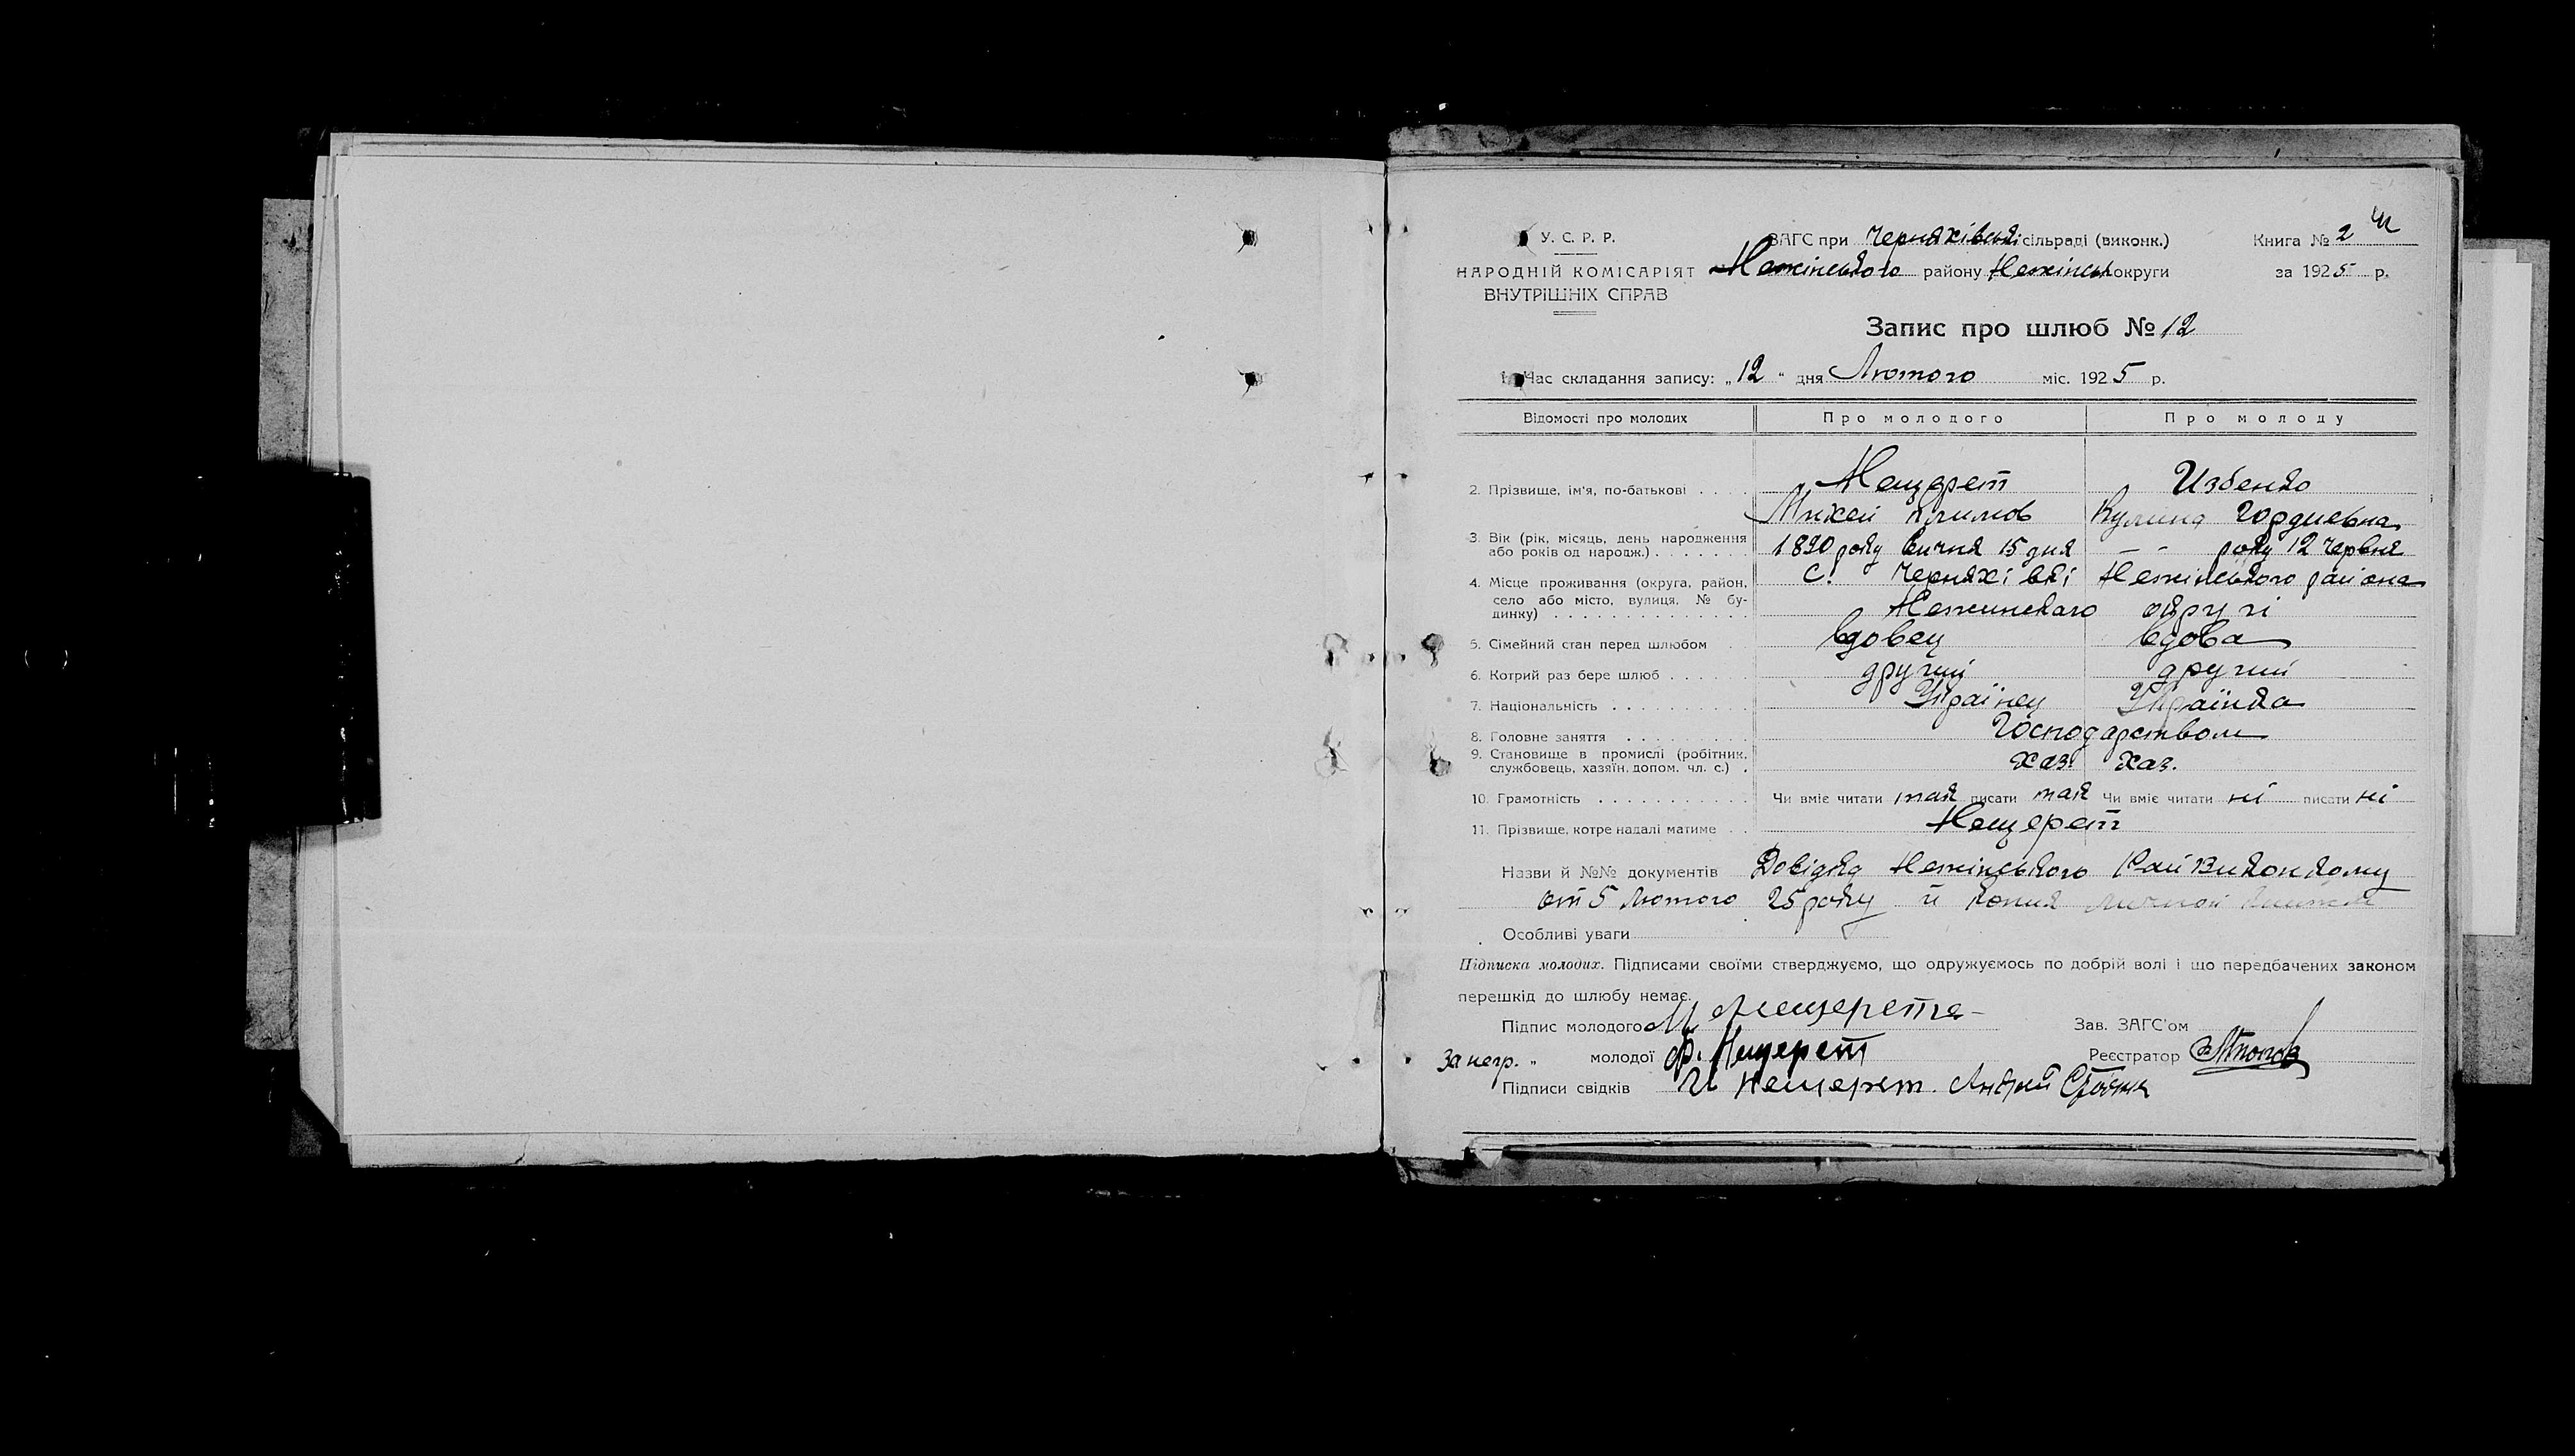 У. С. Р. Р.
НАРОДНІЙ КОМІСАРІЯТ
ВНУТРІШНІХ СПРАВ
ЗАГС при Черняхівській сільраді (виконк.)
Неженського району Неженськ округи
Книга № 2
за 1925 р.
Запис про шлюб № 12
1. Час складання запису: „12“ дня Лютого міс. 1925 р.
Відомості про молодих Про молодого Про молоду
2. Прізвище, ім'я, по-батькові . . . . Нещерет Избенко
Михей Климов Кулина Гордиевна
3. Вік (рік, місяць, день народження або років од народж.) . . . . . . . 1890 року Сичня 15 дня – - року 12 червня
4. Місце проживання (округа, район, село або місто, вулиця, № будинку) . . . . . . . . . . . . . . С. Черняхівкі Неженського района
Неженского округи
5. Сімейний стан перед шлюбом . вдовец вдова
6. Котрий раз бере шлюб . . . . . . другий другий
7. Національність . . . . . . . . . . Українец Українка
8. Головне заняття . . . . . . . . . Господарством
9. Становище в промислі (робітник, службовець, хазяїн, допом. чл. с.) . хаз. хаз.
10. Грамотність . . . . . . . . . . . Чи вміє читати так писати так Чи вміє читати ні писати ні
11. Прізвище, котре надалі матиме . . Нещерет
Назви й №№ документів Довідка Неженського Райвиконкому
от 5 Лютого 25 року й копия личной книжки
Особливі уваги
Підписка молодих. Підписами своїми стверджуємо, що одружуємось по добрій волі і що передбачених законом
перешкід до шлюбу немає.
Підпис молодого М Нещерета
Зав. ЗАГС'ом
За негр. „ молодої Ф. Нещерет
Реєстратор
Підписи свідків И Нещерет. Андрій